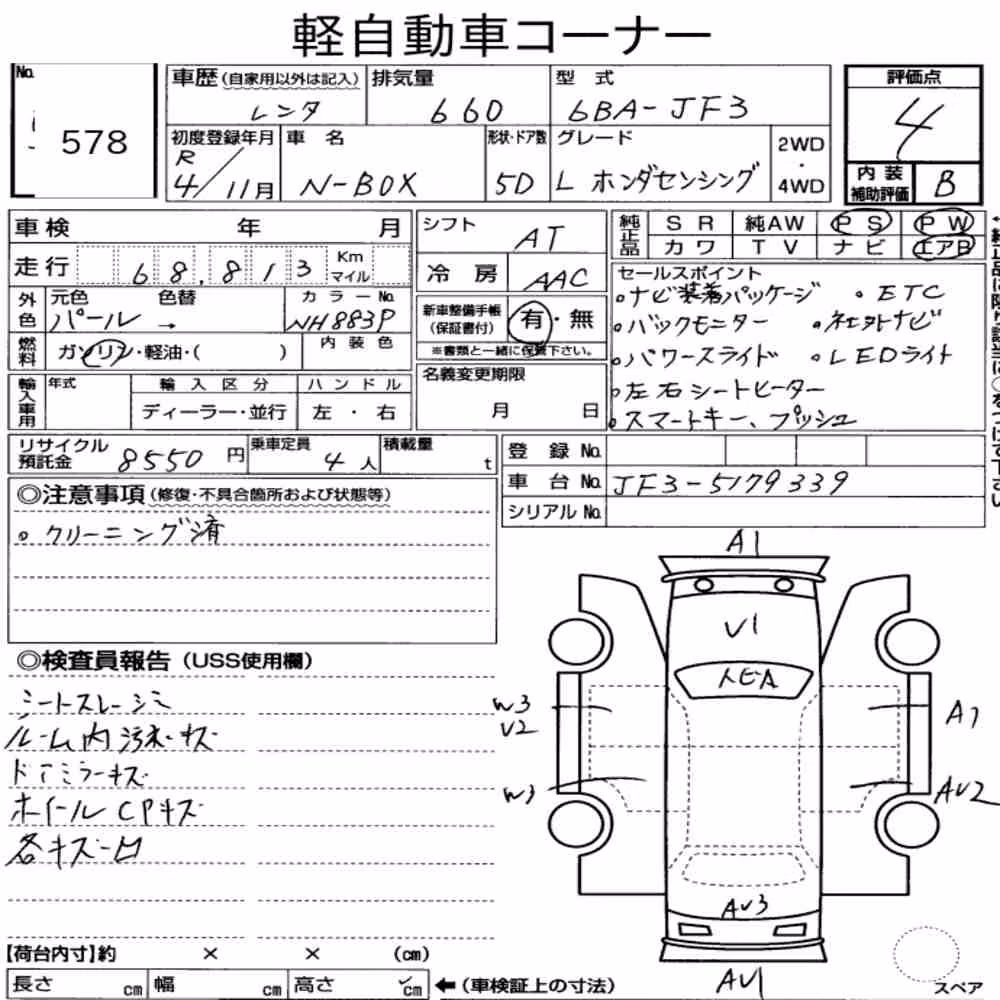 軽自動車コーナー
No.
578
車歴(自家用以外は記入)
レンタ
排気量
660
型式
6BA-JF3
評価点
4
初度登録年月
R
4/11月
車名
N-BOX
形状・ドア数
5D
グレード
L ホンダセンシング
2WD
・
4WD
内装
補助評価
B
車検 年 月
シフト
AT
純正品
SR 純AW PS PW
カワ TV ナビ エアB
走行 68,813 Km
マイル
冷房 AAC
セールスポイント
。ナビ装着パッケージ 。ETC
。バックモニター 。社外ナビ
。パワースライド 。LEDライト
。左右シートヒーター
。スマートキー、プッシュ
外色 元色 色替 カラーNo.
パール → NH883P
新車整備手帳
(保証書付)
有・無
※書類と一緒に保管下さい。
燃料 ガソリン・軽油・( ) 内装色
輸入車用 年式 輸入区分 ハンドル
ディーラー・並行 左・右
名義変更期限
月 日
リサイクル
預託金 8550円
乗車定員
4人
積載量
t
登録No.
車台No. JF3-5179339
シリアルNo.
◎注意事項(修復・不具合箇所および状態等)
。クリーニング済
A1
V1
トビA
W3
V2
A1
W3
AV2
AV3
AV1
◎検査員報告(USS使用欄)
シートスレ・シミ
ルーム内汚れ・キズ
ドアミラーキズ
ホイールCPキズ
各キズ・凹
【荷台内寸】約 × × (cm)
長さ cm 幅 cm 高さ cm
←(車検証上の寸法)
スペア